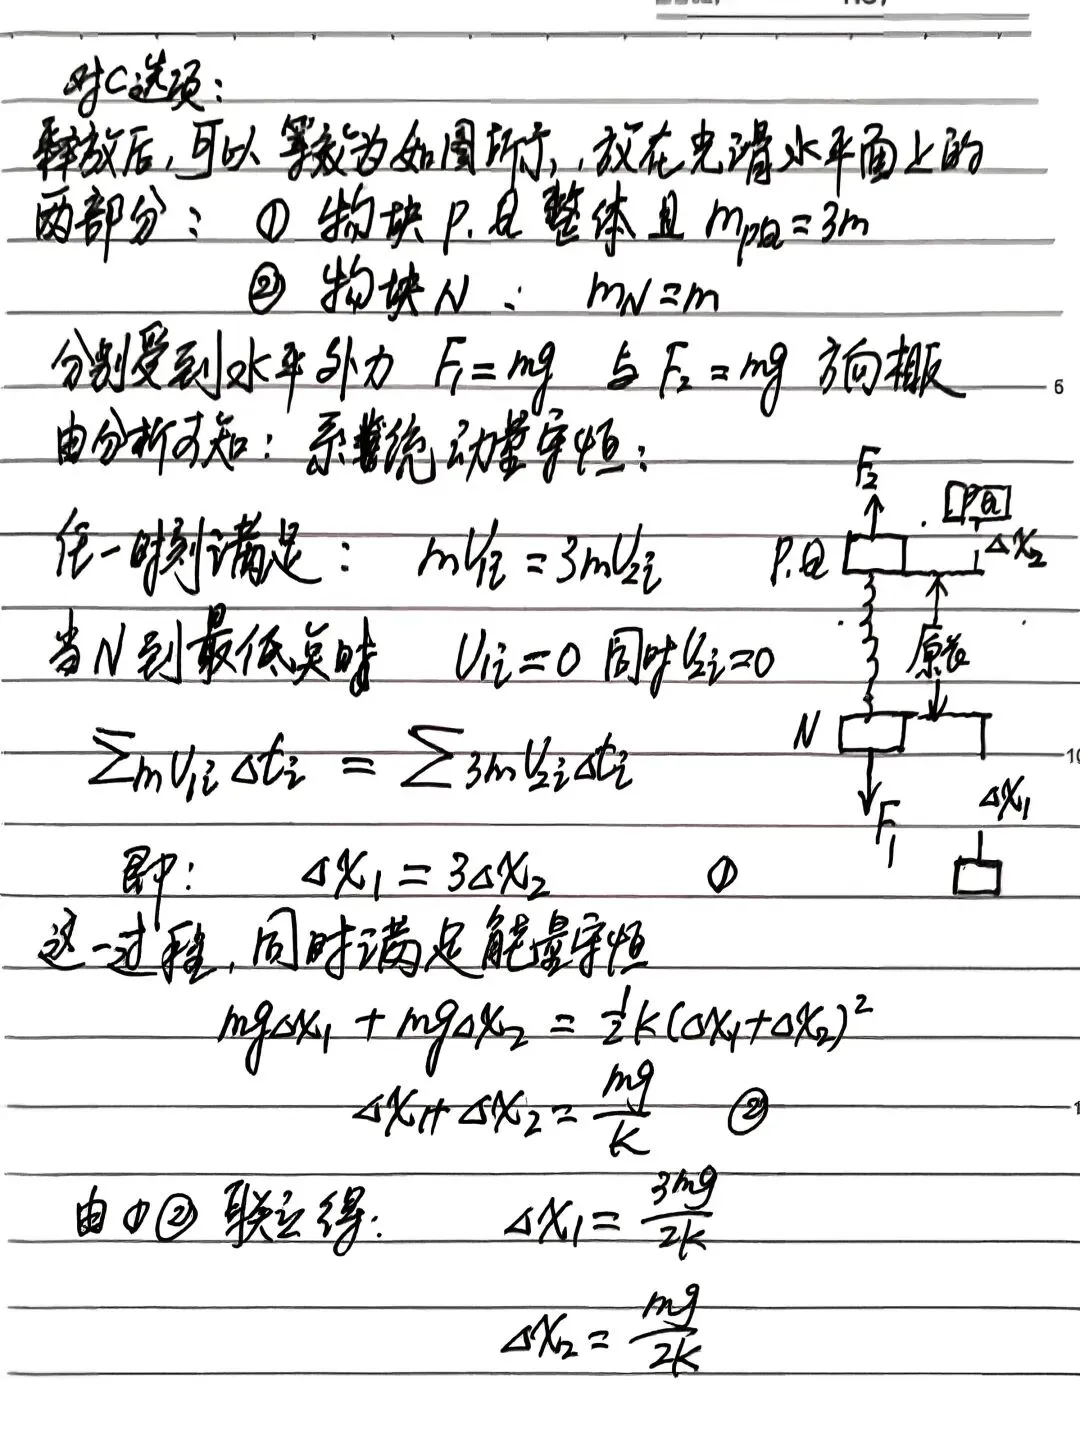 对C选项:
释放后,可以等效为如图所示,放在光滑水平面上的
两部分: ① 物块P.Q整体且 mPQ=3m
② 物块N : mN=m
分别受到水平外力 F₁=mg 与 F₂=mg 方向相反
6
由分析可知: 系统动量守恒:
任一时刻满足: mv₁ᵢ=3mv₂ᵢ
当N到最低点时 v₁ᵢ=0 同时v₂ᵢ=0
∑mv₁ᵢΔtᵢ = ∑3mv₂ᵢΔtᵢ
10
即: Δx₁=3Δx₂ ①
这一过程,同时满足能量守恒
mgΔx₁+mgΔx₂=½k(Δx₁+Δx₂)²
Δx₁+Δx₂=mg/k ②
由①②联立得: Δx₁=3mg/2k
Δx₂=mg/2k
F₂
PQ
P.Q
Δx₂
原长
N
F₁
Δx₁